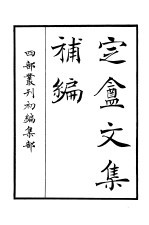 定盦文集
補編
四部叢刊初編集部